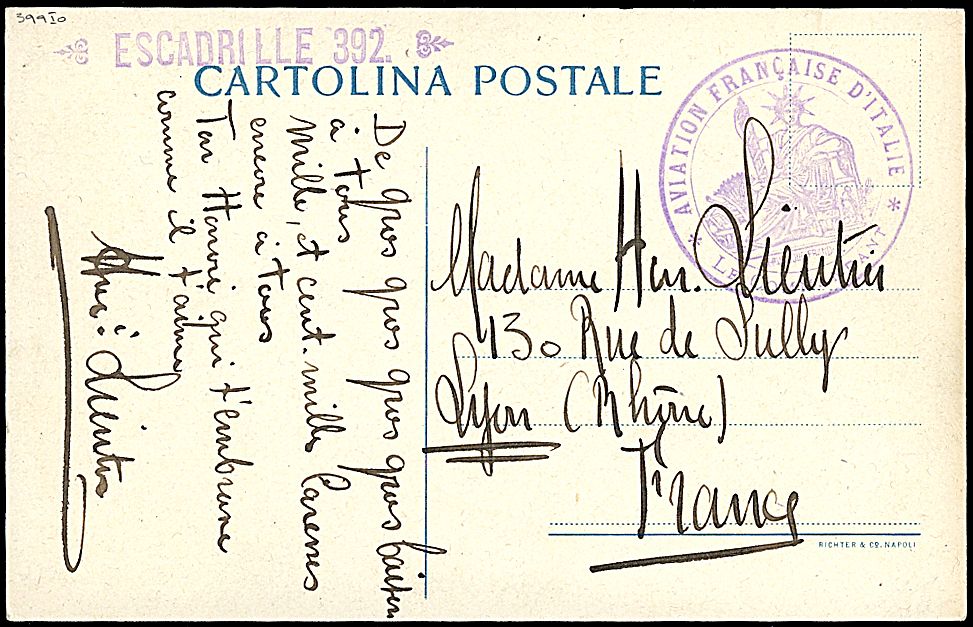 399Io
ESCADRILLE 392.
CARTOLINA POSTALE
* AVIATION FRANÇAISE D'ITALIE *
De gros gros gros gros gros baisers
à tous
Mille, et cent. mille Caresses
encore à tous
Ton Henri qui t'embrasse
comme il t'aime
Madame Hen.
130 Rue de Sully
Lyon (Rhône)
France
RICHTER & Cº. NAPOLI